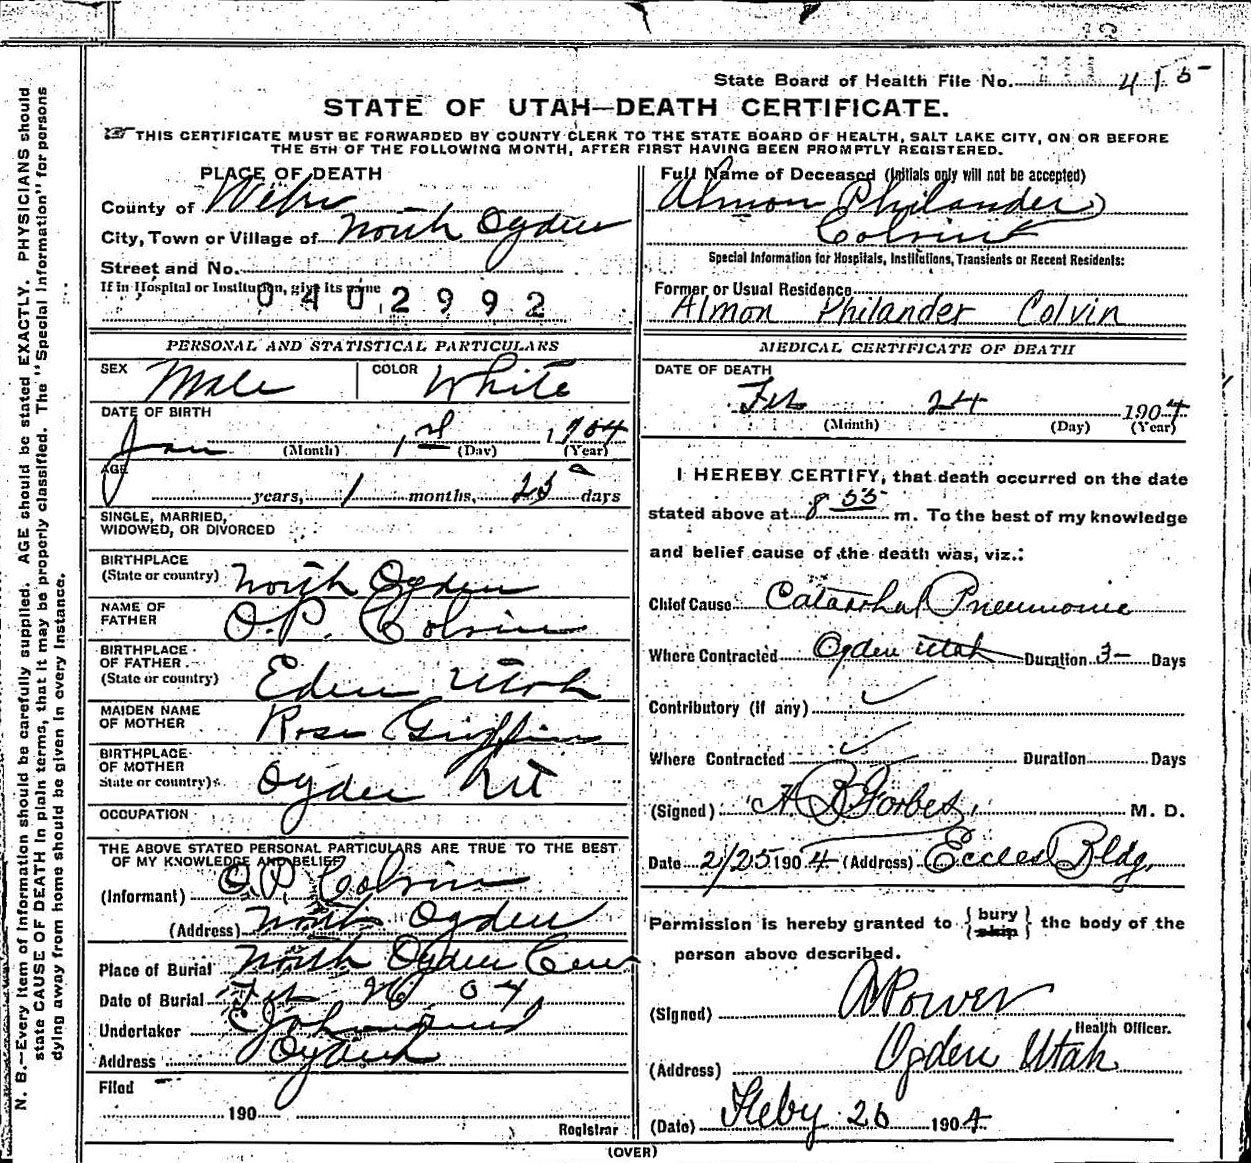 State Board of Health File No. 415
STATE OF UTAH—DEATH CERTIFICATE.
THIS CERTIFICATE MUST BE FORWARDED BY COUNTY CLERK TO THE STATE BOARD OF HEALTH, SALT LAKE CITY, ON OR BEFORE
THE 5TH OF THE FOLLOWING MONTH, AFTER FIRST HAVING BEEN PROMPTLY REGISTERED.
N. B.—Every item of information should be carefully supplied. AGE should be stated EXACTLY. PHYSICIANS should
state CAUSE OF DEATH in plain terms, that it may be properly classified. The "Special Information" for persons
dying away from home should be given in every instance.
PLACE OF DEATH
County of Weber
City, Town or Village of North Ogden
Street and No.
If in Hospital or Institution, give its name
0402992
Full Name of Deceased (Initials only will not be accepted)
Almon Philander
Colvin
Special Information for Hospitals, Institutions, Transients or Recent Residents:
Former or Usual Residence
Almon Philander Colvin
PERSONAL AND STATISTICAL PARTICULARS
SEX Male COLOR White
DATE OF BIRTH
Jan (Month) 1 (Day) 1904 (Year)
AGE
years, 1 months, 25 days
SINGLE, MARRIED,
WIDOWED, OR DIVORCED
BIRTHPLACE
(State or country) North Ogden
NAME OF
FATHER O.P. Colvin
BIRTHPLACE
OF FATHER
(State or country) Eden Utah
MAIDEN NAME
OF MOTHER Rose Griffin
BIRTHPLACE
OF MOTHER
State or country) Ogden Ut
OCCUPATION
THE ABOVE STATED PERSONAL PARTICULARS ARE TRUE TO THE BEST
OF MY KNOWLEDGE AND BELIEF
(Informant) O.P. Colvin
(Address) North Ogden
Place of Burial North Ogden Cem
Date of Burial Feb 26 04
Undertaker
Address Ogden
Filed
190
Registrar
MEDICAL CERTIFICATE OF DEATH
DATE OF DEATH
Feb 24 1904
(Month) (Day) (Year)
I HEREBY CERTIFY, that death occurred on the date
stated above at 8 55 m. To the best of my knowledge
and belief cause of the death was, viz.:
Chief Cause Catarrhal Pneumonia
Where Contracted Ogden Utah Duration 3 Days
Contributory (if any) ✓
Where Contracted ✓ Duration Days
(Signed) A B Forbes, M. D.
Date 2/25 1904 (Address) Eccles Bldg.
Permission is hereby granted to {bury
ship} the body of the
person above described.
(Signed) Power
Health Officer.
(Address) Ogden Utah
(Date) Feby 26 1904
(OVER)